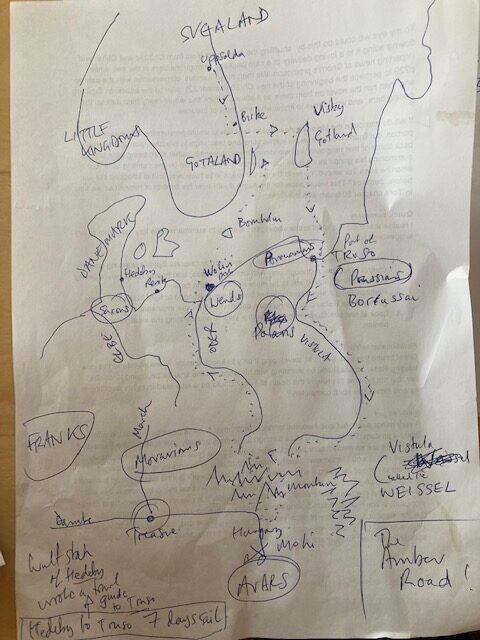 SVEALAND
Uppsalda
Birke
Visby
Gotland
LITTLE
KINGDOMS
GOTALAND
Bornholm
DANEMARK
Hedeby
Wolin
Pomeranians
Port of
TRUSO
Prussians
Saxons
Wends
Polans
ELBE
ODER
VISTULA
FRANKS
March
Moravians
Vistula
WEISSEL
Mountains
Danube
Treasure
Hungary
Mohi
AVARS
The
Amber
Road!
Wulfstan
of Hedeby
wrote a travel
guide
to Truso
Hedeby to Truso 7 days sail